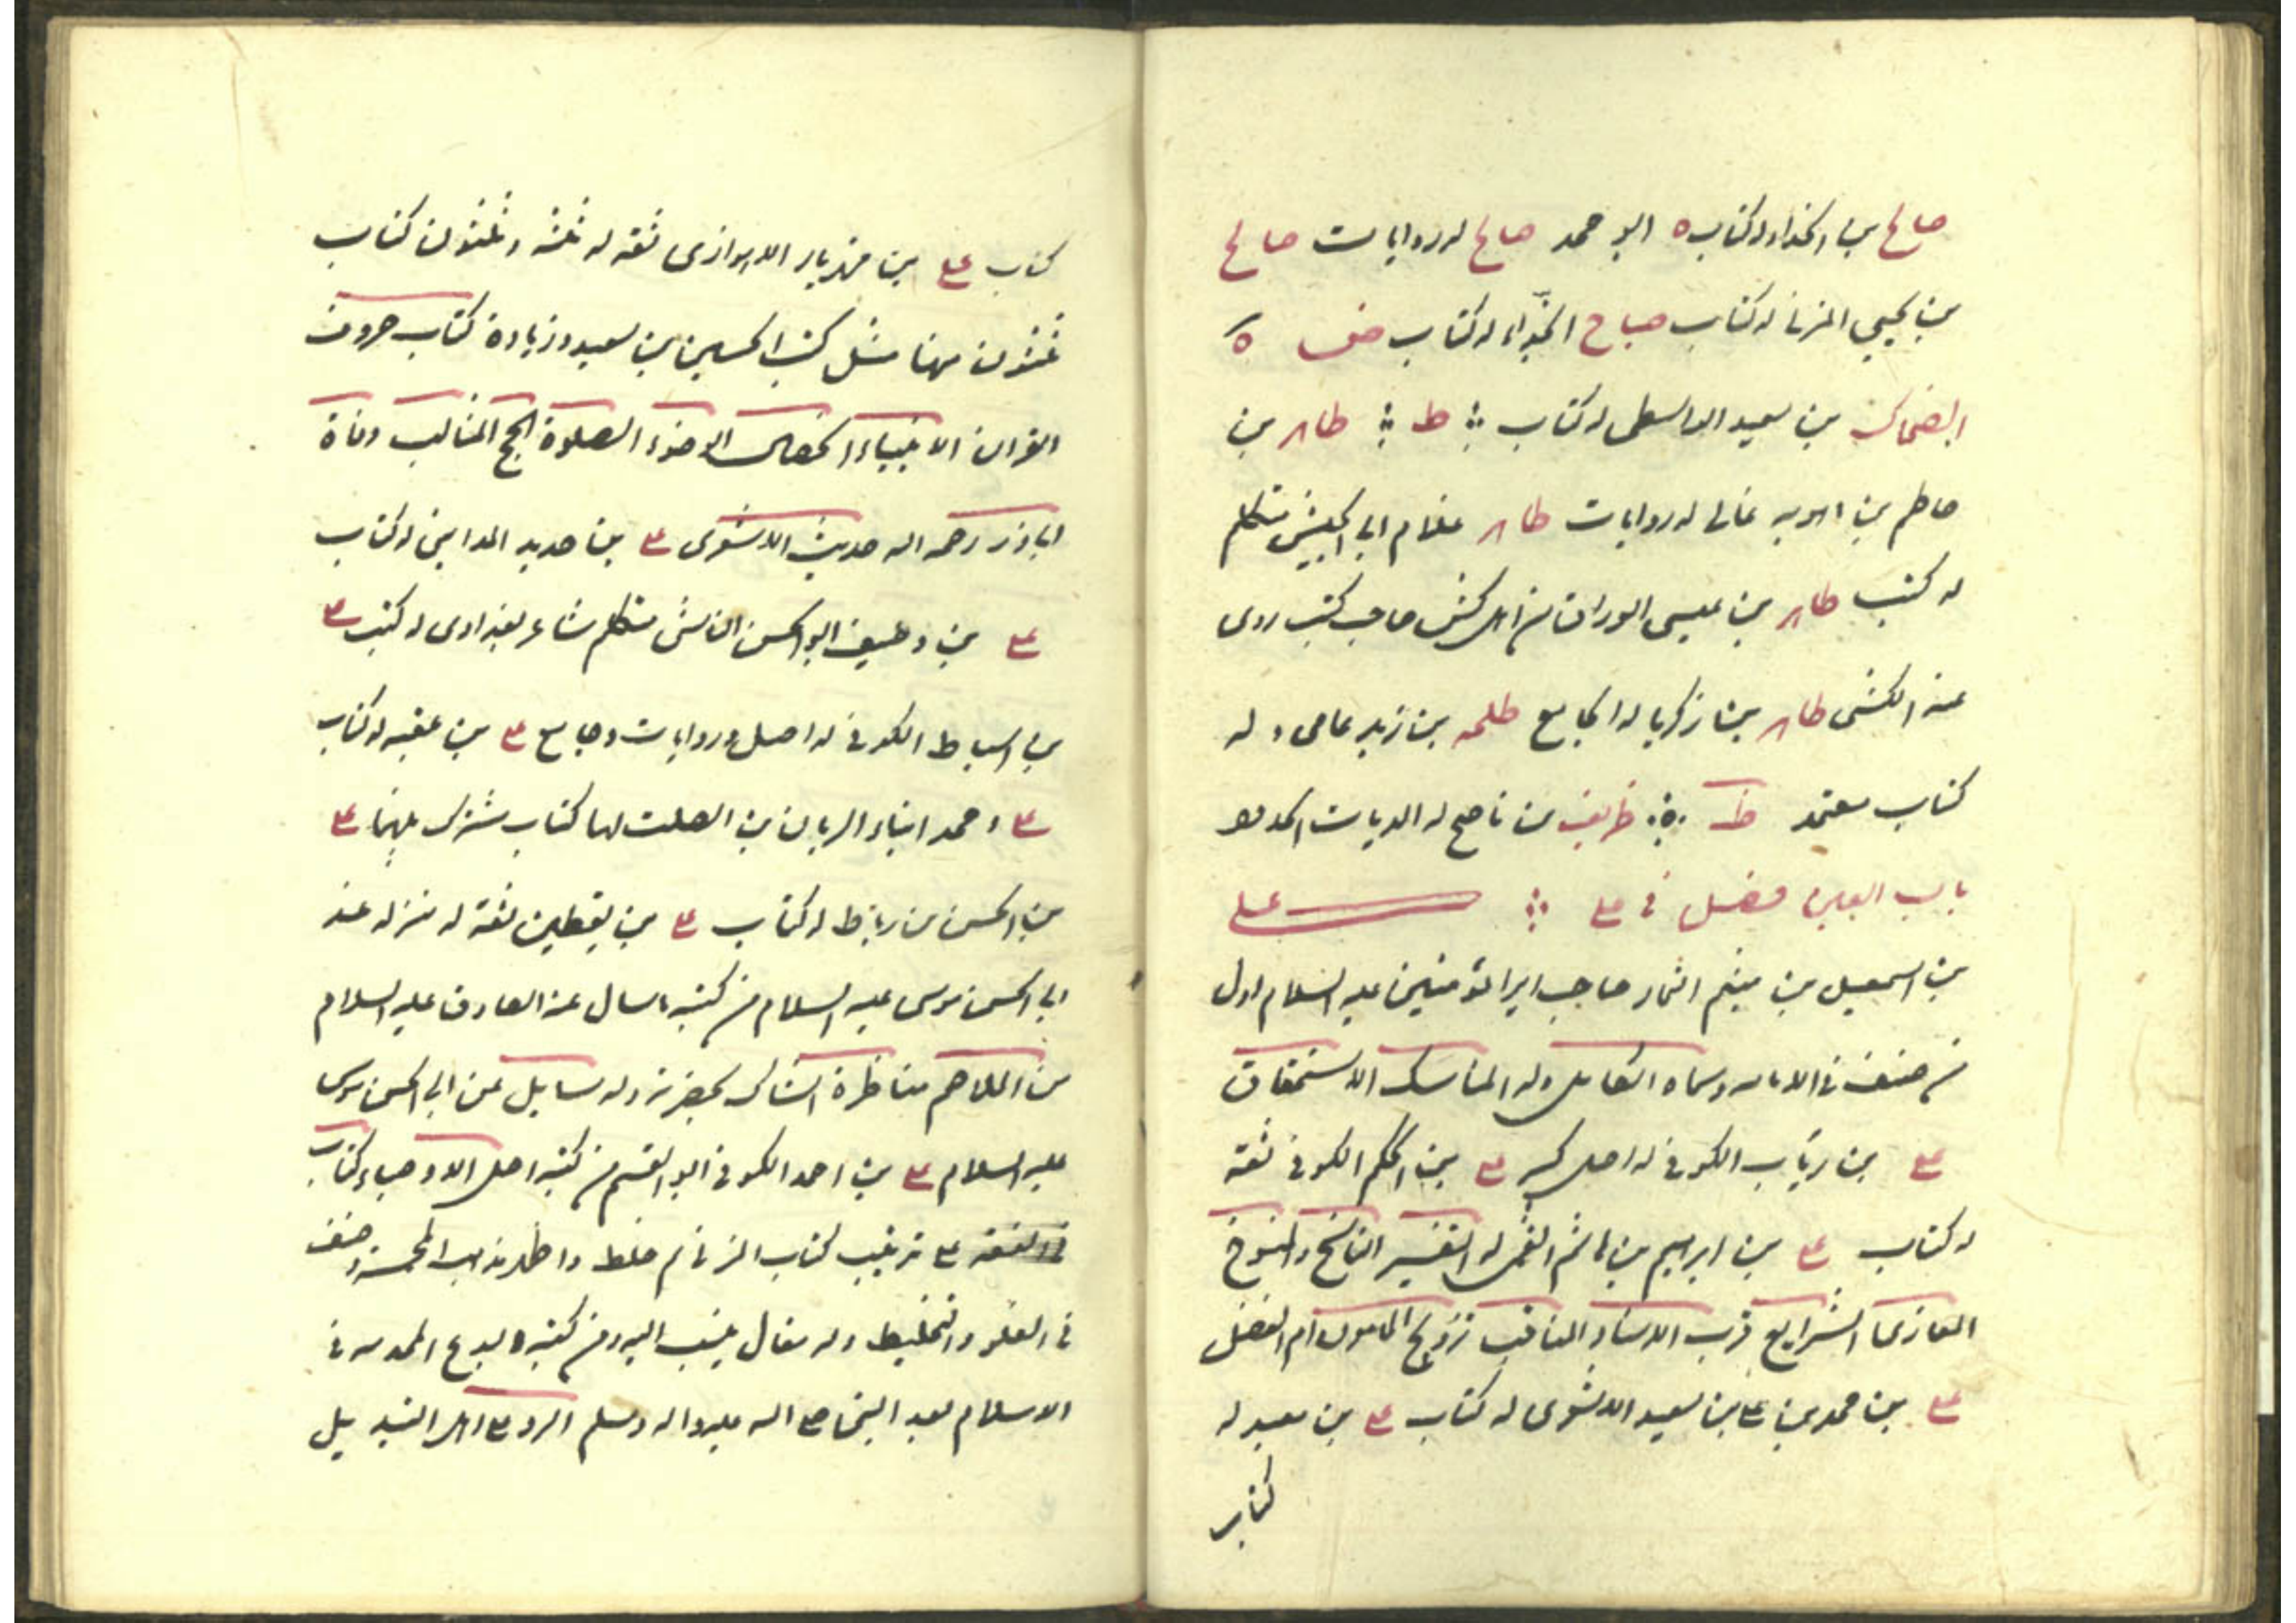 صالح بن الحذاء له كتاب ٥ ابو محمد صالح له روايات صالح
بن يحيى المزنى له كتاب صباح الحذّاء له كتاب ض ٥
الضحاك بن سعيد الواسطى له كتاب ؞ ط ؞ طاهر بن
حاطم بن اهويه غالى له روايات طاهر غلام ابى الجيش متكلم
له كتب طاهر بن عيسى الوراق من اهل كش صاحب كتب روى
عنه الكشى طاهر بن زكريا له الجامع طلحه بن زيد عامى و له
كتاب معتمد ظ ؞ ظريف بن ناصح له الديات
باب العين فصل فى على ؞ على
بن اسمعيل بن ميثم التمار صاحب امير المؤمنين عليه السلام اول
من صنف فى الامامه وسماه الكامل وله المناسك الاستحقاق
على بن رياب الكوفى له اصل كبير على بن الحكم الكوفى ثقة
له كتاب على بن ابراهيم بن هاشم القمى له التفسير الناسخ والمنسوخ
المغازى الشرايع قرب الاسناد المناقب تزويج المامون ام الفضل
على بن محمد بن على بن سعيد الاشعرى له كتاب على بن معبد له
كتاب
كتاب على بن مهزيار الاهوازى ثقه له ثلثه و ثلثون كتاب
ثلثون منها مثل كتب الحسين بن سعيد وزيادة كتاب حروف
القران الانبياء الوضوء الصلوة الحج المثالب وفاة
اباذر رحمه الله حديث الاشعرى على بن حديد المداينى له كتاب
على بن وصيف ابو الحسن الناشى متكلم شاعر بغدادى له كتب على
بن اسباط الكوفى له اصل و روايات وجامع على بن عقبه له كتاب
على و محمد ابناء الريان بن الصلت لهما كتاب مشترك بينهما على
بن الحسن بن رباط له كتاب على بن يقطين ثقة له منزله عند
ابى الحسن موسى عليه السلام من كتبه ما سال عنه الصادق عليه السلام
من الملاحم مناظرة الشاك بحضرته وله مسايل عن ابى الحسن موسى
عليه السلام على بن احمد الكوفى ابو القسم من كتبه اصل الاوصياء كتاب
فى الفقه على ترتيب كتاب المزنى ثم خلط واظهر مذاهب المخمسة وصنف
فى الغلو و التخليط وله مقال ينسب اليه ومن كتبه البدع المحدثه فى
الاسلام بعد النبى صلى الله عليه واله وسلم الرد على اهل التبديل